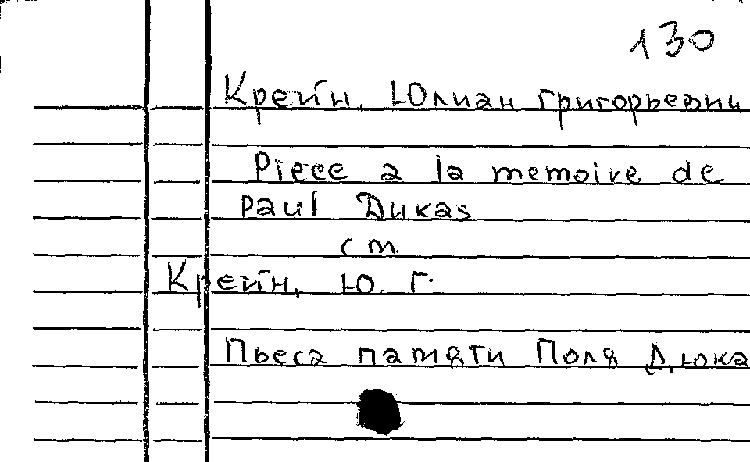 130
Крейн, Юлиан Григорьевич
Piece a la memoire de
Paul Dukas
см
Крейн, Ю. Г.
Пьеса памяти Поля Дюка